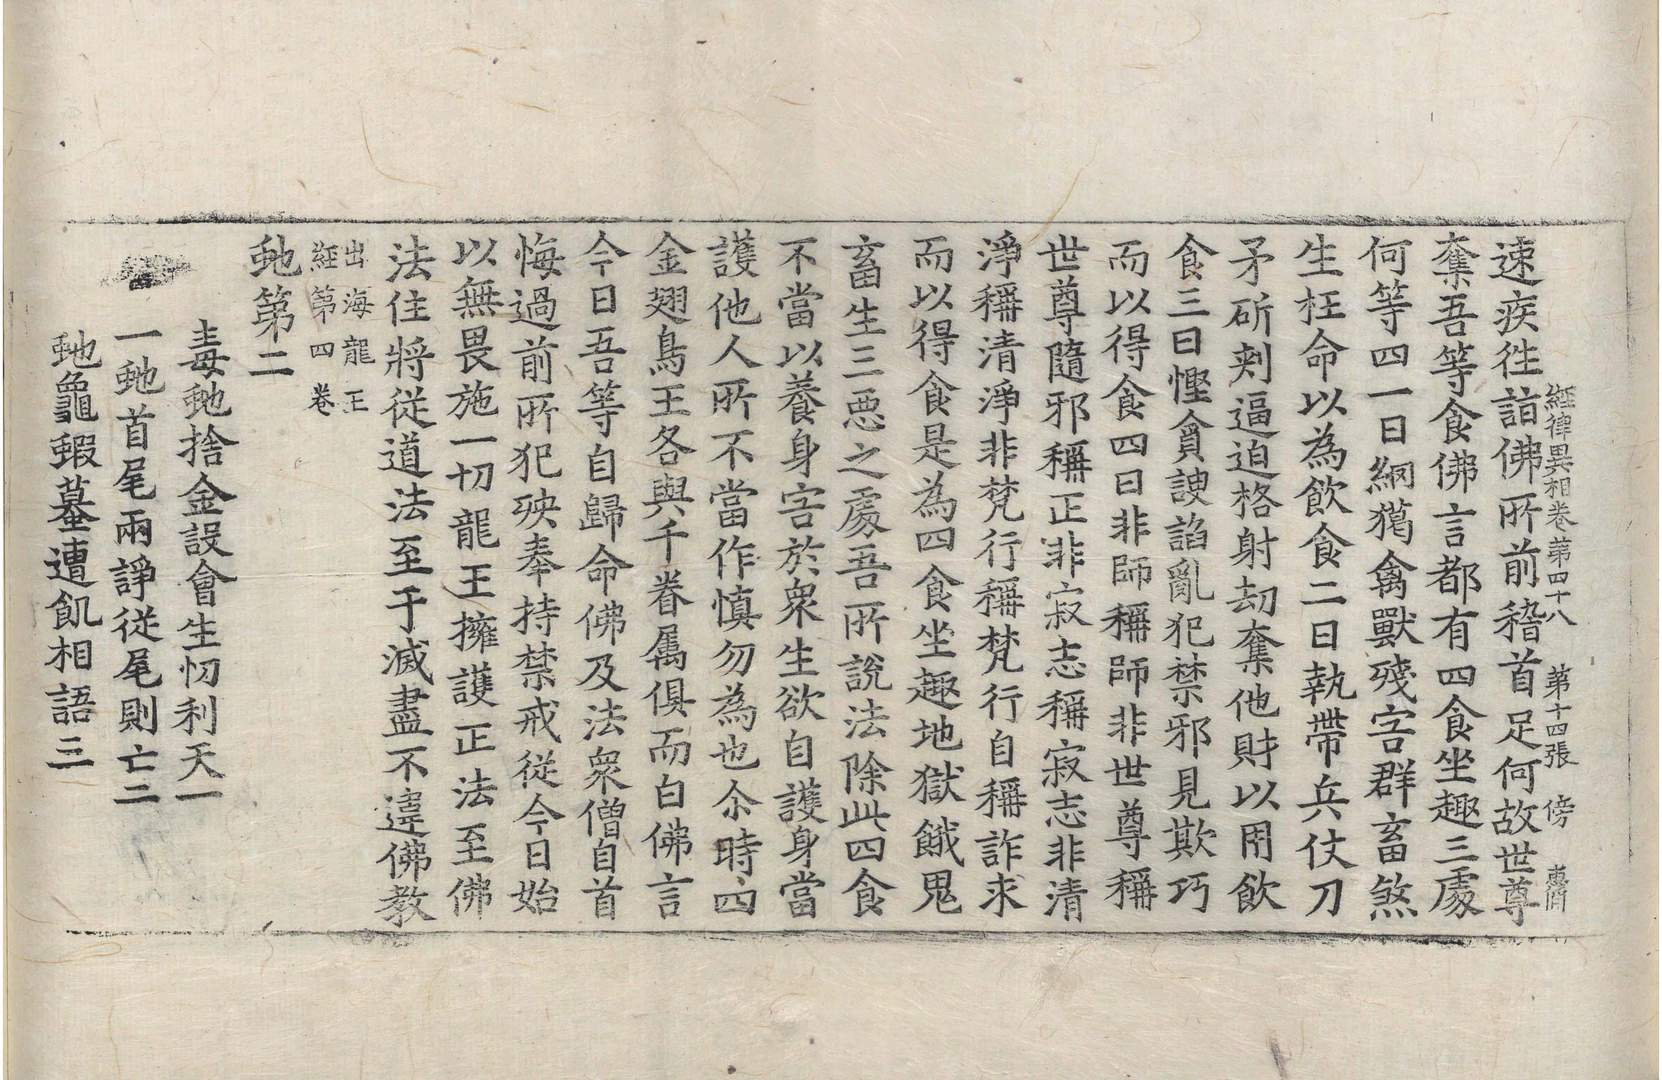 經律異相卷第四十八 第十四張 傍
速疾往詣佛所前稽首足何故世尊
奪吾等食佛言都有四食坐趣三處
何等四一曰網獵禽獸殘害群畜煞
生枉命以為飲食二曰執帶兵仗刀
矛斫刺逼迫格射劫奪他財以用飲
食三曰慳貪諛諂亂犯禁邪見欺巧
而以得食四曰非師稱師非世尊稱
世尊隨邪稱正非寂志稱寂志非清
淨稱清淨非梵行稱梵行自稱詐求
而以得食是為四食坐趣地獄餓鬼
畜生三惡之處吾所說法除此四食
不當以養身害於衆生欲自護身當
護他人所不當作慎勿為也尒時四
金翅鳥王各與千眷屬俱而白佛言
今日吾等自歸命佛及法衆僧自首
悔過前所犯殃奉持禁戒從今日始
以無畏施一切龍王擁護正法至佛
法住將從道法至于滅盡不違佛教
出海龍王
經第四卷
虵第二
毒虵捨金設會生忉利天一
一虵首尾兩諍從尾則亡二
虵龜蝦蟇遭飢相語三